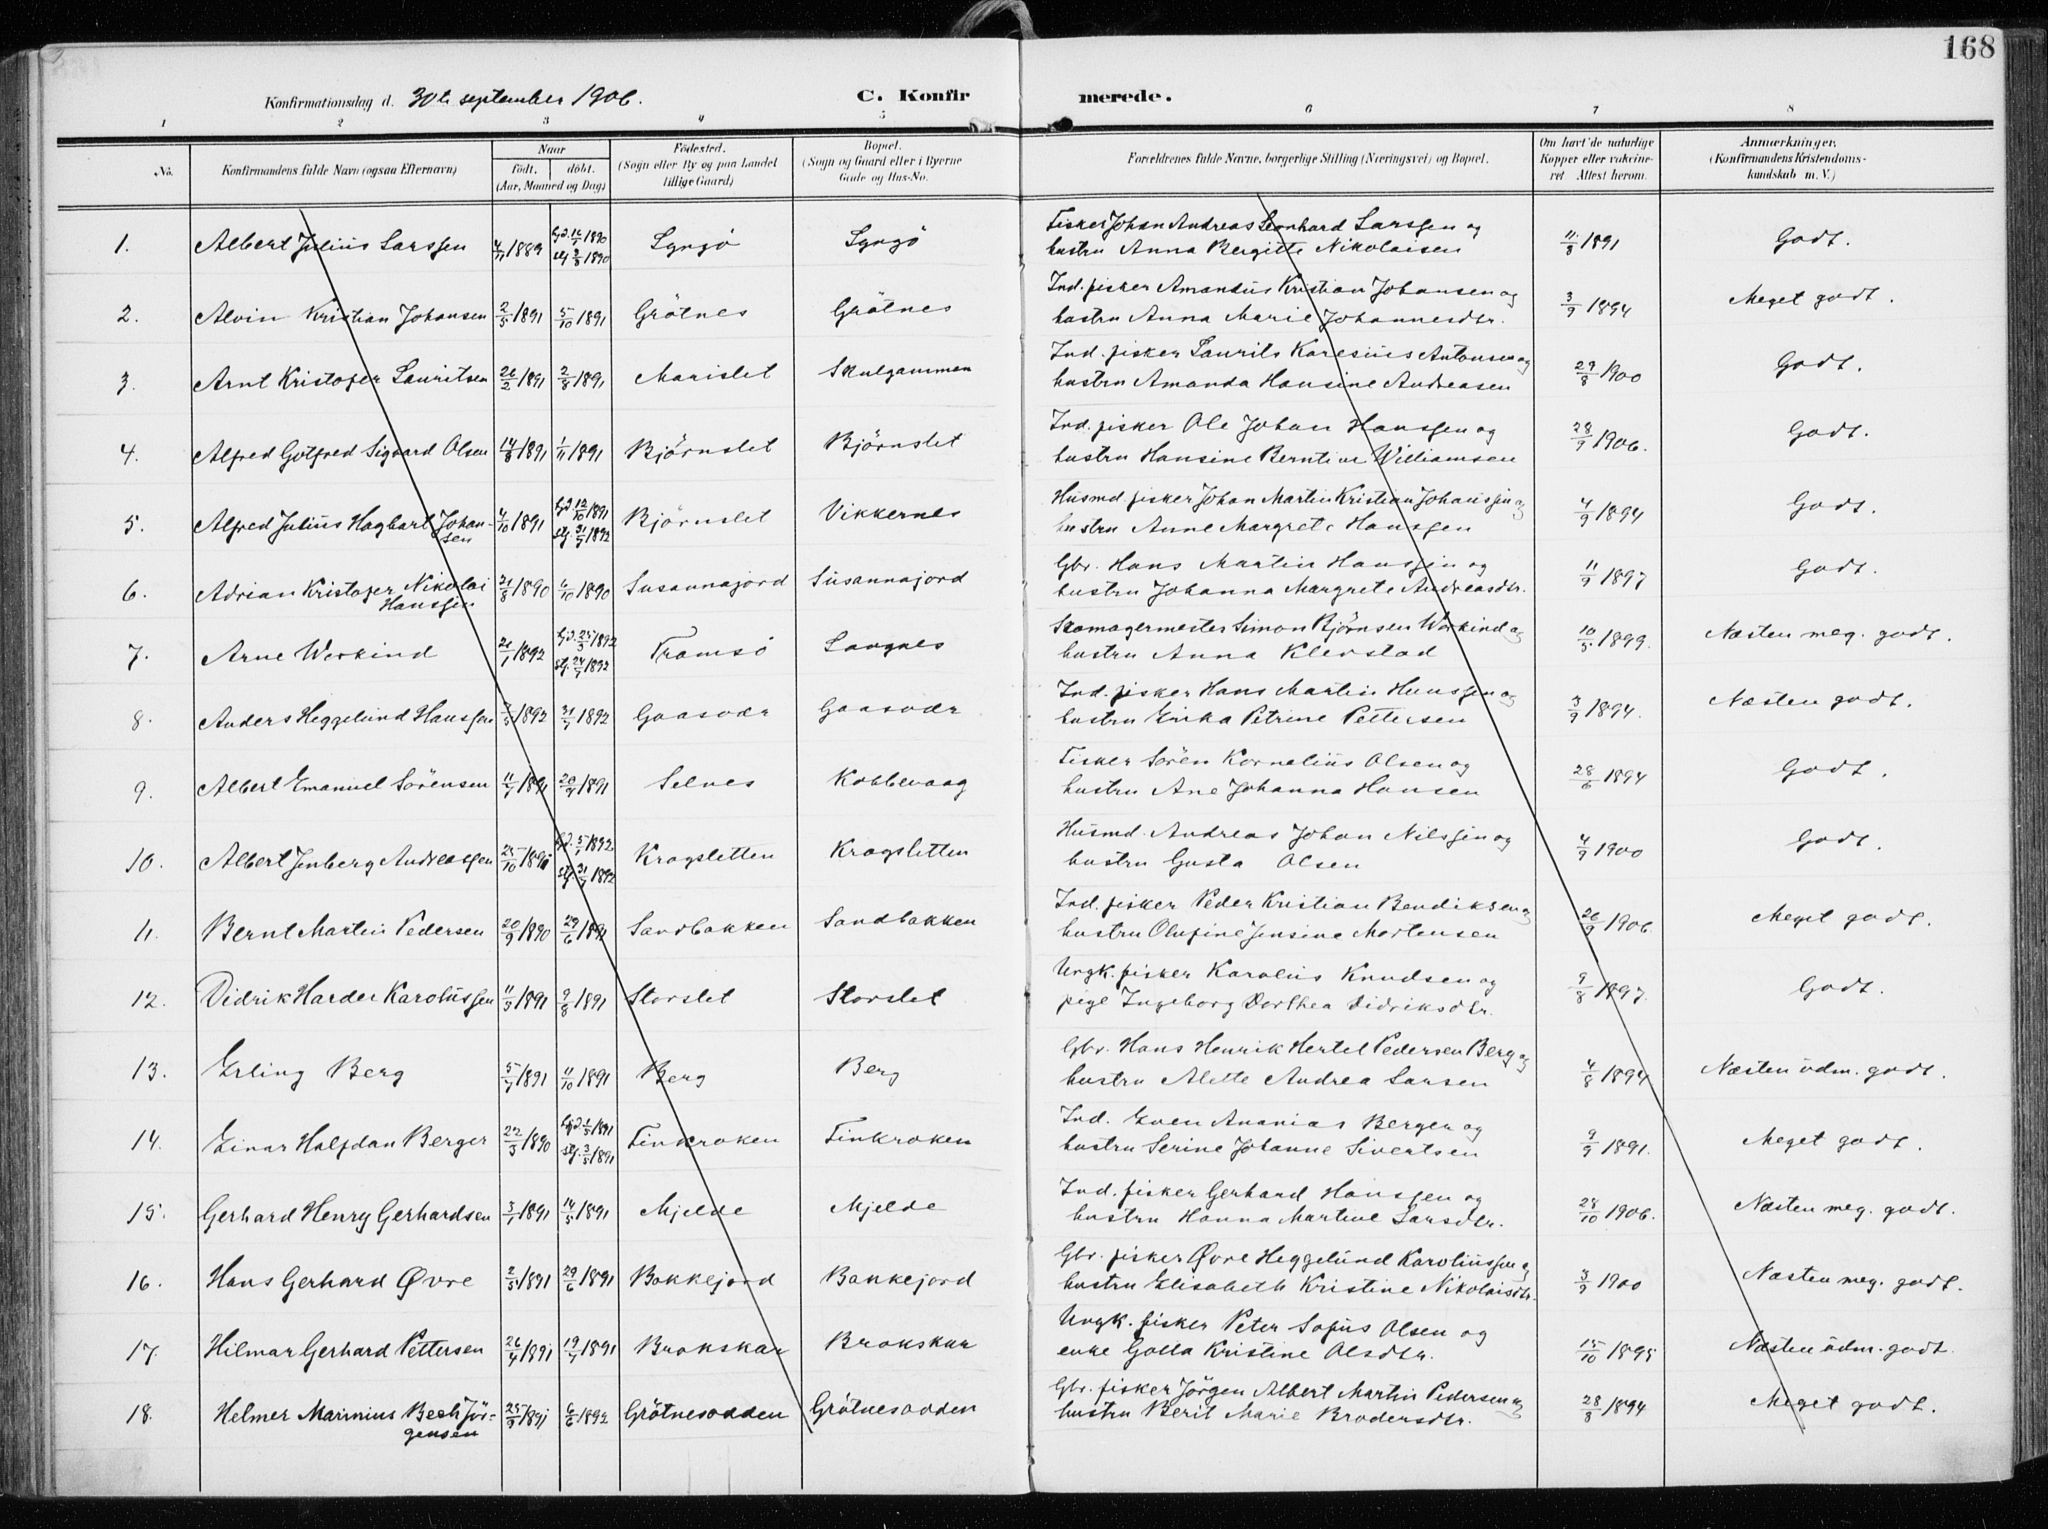 168
Konfirmationsdag d. 30te september 1906. C. Konfirmerede.
1 2 3 4 5 6 7 8
No. Konfirmandens fulde Navn (ogsaa Efternavn) Naar födt. döbt. (Aar, Maaned og Dag) Födested. (Sogn eller By og paa Landet tillige Gaard) Bopæl. (Sogn og Gaard eller i Byerne Gade og Hus-No. Forældrenes fulde Navne, borgerlige Stilling (Næringsvei) og Bopæl. Om havt de naturlige Kopper eller vaccineret Attest herom. Anmærkninger. (Konfirmandens Kristendomskundskab m. V.)
1. Albert Julius Larssen 4/11 1889 hjd. 16/1 1890 stf. 3/8 1890 Lyngö Lyngö Fisker Johan Andreas Leonhard Larssen og
hustru Anna Bergitte Nikolaisen 11/8 1891 Godt.
2. Alvin Kristian Johansen 2/5 1891 5/10 1891 Grötnes Grötnes Ind. fisker Amandus Kristian Johansen og
hustru Anna Marie Johannesdtr. 3/9 1894 Meget godt.
3. Arnt Kristofer Lauritsen 26/2 1891 2/8 1891 Marislet Skulgammen Ind. fisker Laurits Karesius Antonsen og
hustru Amanda Hansine Andreasen 29/8 1900 Godt.
4. Alfred Gotfred Sigvard Olsen 14/8 1891 1/11 1891 Björnslet Björnslet Ind. fisker Ole Johan Hanssen og
hustru Hansine Berntine Williamsen 28/9 1906. Godt.
5. Alfred Julius Hagbart Johansen 4/10 1891 hjd. 12/10 1891 stf. 31/7 1892 Björnslet Vikkernes Husmd. fisker Johan Martin Kristian Johanssen og
hustru Anne Margrete Hanssen 4/9 1894 Godt.
6. Adrian Kristofer Nikolai Hanssen 31/8 1890 6/10 1890 Susannajord Susannajord Gbr. Hans Martin Hanssen og
hustru Johanna Margrete Andreasdtr. 11/9 1897 Godt.
7. Arne Werkind 26/1 1892 hjd. 25/3 1892 stf. 24/7 1892 Tromsö Langnes Skomagermester Simon Björnsen Werkind og
hustru Anna Klevstad 10/5 1899. Næsten meg. godt.
8. Anders Heggelund Hanssen 3/5 1892 31/7 1892 Gaasvær Gaasvær Ind. fisker Hans Martin Hanssen og
hustru Erika Petrine Pettersen 3/9 1894. Næsten godt.
9. Albert Emanuel Sörensen 11/7 1891 20/9 1891 Selnes Kobbevaag Fisker Sören Kornelius Olsen og
hustru Ane Johanna Hansen 28/6 1894 Godt.
10. Albert Jenberg Andreassen 25/10 1891 hjd. 5/1 1892 stf. 31/7 1892 Kragsletten Kragsletten Husmd. Andreas Johan Nilssen og
hustru Gusta Olsen 4/9 1900 Godt.
11. Bernt Martin Pedersen 20/9 1890 29/6 1891 Sandbakken Sandbakken Ind. fisker Peder Kristian Bendiksen og
hustru Olufine Jensine Mortensen 26/9 1906. Meget godt.
12. Didrik Harder Karolussen 11/3 1891 9/8 1891 Storslet Storslet Ungk. fisker Karolus Knudsen og
pige Ingeborg Dorthea Didriksdtr. 9/8 1897. Godt.
13. Erling Berg 5/7 1891 11/10 1891 Berg Berg Gbr. Hans Henrik Hertel Pedersen Berg og
hustru Alette Andrea Larsen 4/8 1894 Næsten udm. godt.
14. Einar Halfdan Berger 22/3 1890 hjd. 1/5 1891 stf. 3/5 1891 Finkroken Finkroken Ind. Even Ananias Berger og
hustru Serine Johanne Sivertsen 9/9 1891. Meget godt.
15. Gerhard Henry Gerhardsen 3/1 1891 14/5 1891 Mjelde Mjelde Ind. fisker Gerhard Hanssen og
hustru Hanna Martine Larsdtr. 28/10 1906. Næsten meg. godt.
16. Hans Gerhard Øvre 2/5 1891 29/6 1891 Bakkejord Bakkejord Gbr. fisker Øvre Heggelund Karolussen og
hustru Elisabeth Kristine Nikolaisdtr. 3/9 1900 Næsten meg. godt.
17. Hilmar Gerhard Pettersen 26/4 1891 19/7 1891 Brokskar Brokskar Ungk. fisker Peter Sofus Olsen og
enke Golla Kristine Olsdtr. 15/10 1895 Næsten udm. godt.
18. Helmer Marinius Bech Jörgensen 25/9 1891 6/6 1892 Grötnesodden Grötnesodden Gbr. fisker Jörgen Albert Martin Pedersen og
hustru Berit Marie Brodersdtr. 28/8 1894 Meget godt.